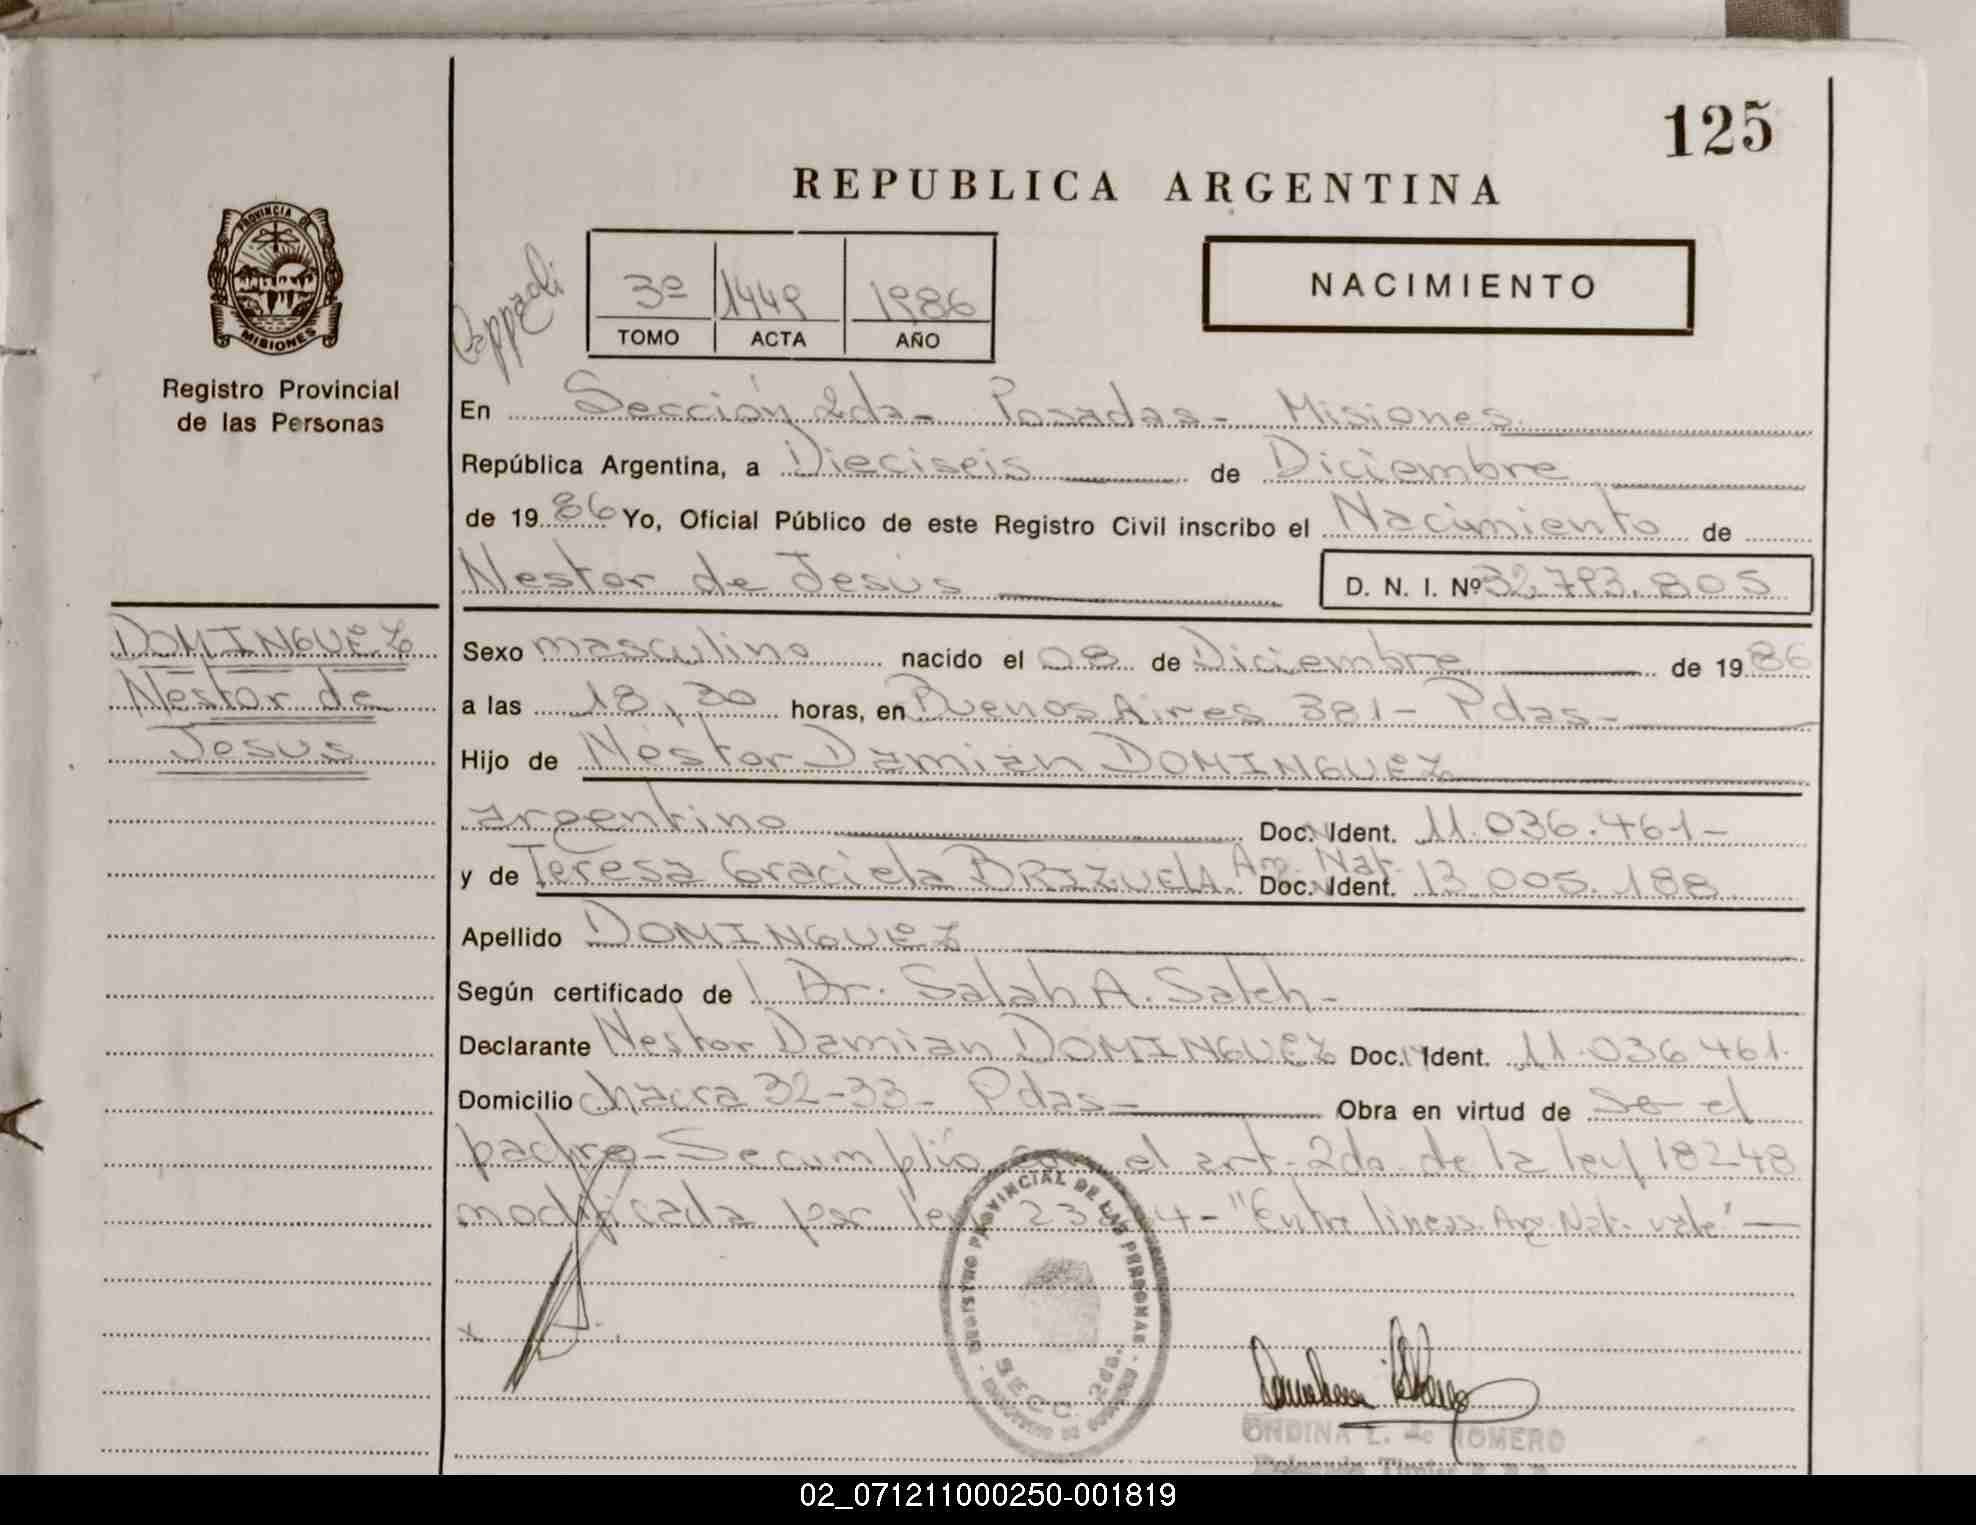 125
REPUBLICA ARGENTINA
PROVINCIA DE
MISIONES
Registro Provincial
de las Personas
3º 1449 1986
TOMO ACTA AÑO
NACIMIENTO
En Sección 2da- Posadas- Misiones
República Argentina, a Dieciseis de Diciembre
de 1986 Yo, Oficial Público de este Registro Civil inscribo el Nacimiento de
Nestor de Jesús D. N. I. Nº 32.793.805
DOMINGUEZ
Nestor de
Jesus
Sexo masculino nacido el 08 de Diciembre de 1986
a las 18,30 horas, en Buenos Aires 381- Pdas-
Hijo de Néstor Damián DOMINGUEZ
argentino Doc. N Ident. 11.036.461-
Arg. Nat.
y de Teresa Graciela BRIZUELA Doc. N Ident. 13.005.188
Apellido DOMINGUEZ
Según certificado de Dr. Salah A. Saleh-
Declarante Nestor Damian DOMINGUEZ Doc. N Ident. 11.036.461.
Domicilio chacra 32-33- Pdas- Obra en virtud de Se el
padre- Se cumplió con el art. 2do. de la ley 18248
modificada por ley 23 4- "Entre lineas. Arg. Nat. vale"
x
REGISTRO PROVINCIAL DE LAS PERSONAS
SECC. 2da.
ONDINA L. de ROMERO
02_071211000250-001819